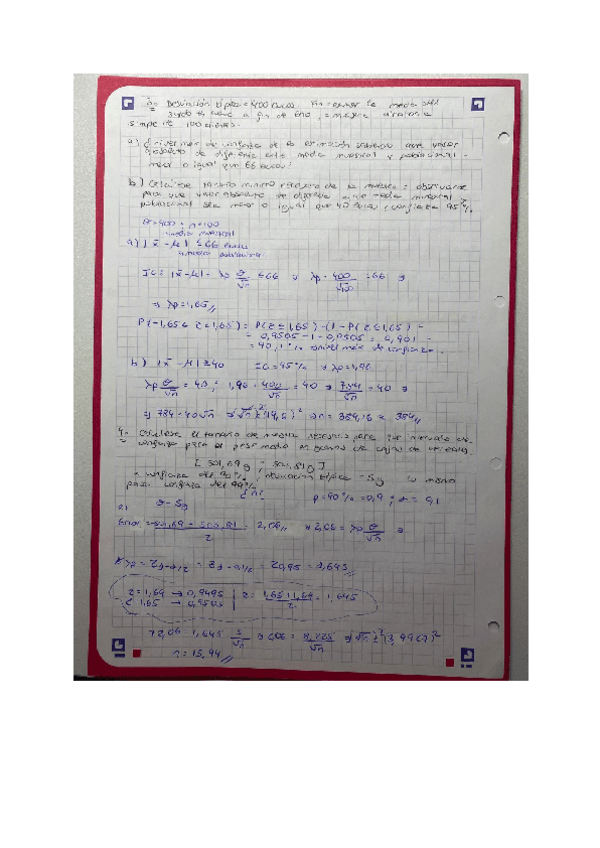 3. Desviación típica = 400 euros. para estimar la media del
saldo de fin de año, muestra aleatoria
simple de 100 clientes.
a) ¿ nivel max de confianza de la estimación si valor
absoluto de diferencia entre media muestral y poblacional
menor o igual que 66 euros?
b) Calcúlese tamaño mínimo de la muestra a observarse
para que valor absoluto de diferencia entre media muestral y
poblacional sea menor o igual que 40 euros, confianza 95%.
σ=400 n=100
media muestral
a) |x̄ - μ| ≤ 66 euros
media poblacional
IC= |x̄-μ| = λp σ/√n ≤66 ⇒ λp · 400/√100 =66 ⇒
⇒ λp=1,65//
P(-1,65 ≤ z ≤ 1,65) = P(z ≤ 1,65) - (1 - P(z ≤ 1,65) =
= 0,9505 - 1 + 0,9505 = 0,901 =
= 90,1% nivel máx de confianza.
b) |x̄ - μ| ≤ 40 IC=95% ⇒ λp=1,96
λp σ/√n = 40 ; 1,96 · 400/√n = 40 ⇒ 784/√n = 40 ⇒
⇒ 784 = 40√n ⇒ (√n)² = (19,6)² ⇒ n = 384,16 ≈ 384//
4. Calcúlese el tamaño de muestra necesario para que intervalo de
confianza para el peso medio en gramos de cajas de cereales
[501,69 g ; 505,81 g]
confianza del 90%, desviación típica = 5g
para confianza del 99%
p=90% = 0,9 ; α = 0,1
a) σ = 5g
Error = 501,69 - 505,81 / 2 = 2,06// ⇒ 2,06 = λp σ/√n ⇒
λp = z1-α/2 = z1-0,1/2 = z0,95 = 1,645//
z=1,64 → 0,9495 | z = 1,65+1,64/2 = 1,645
z 1,65 → 0,9505
⇒ 2,06 = 1,645 5/√n ⇒ 2,06 = 8,225/√n ⇒ (√n)² = (3,9927)²
n = 15,94//